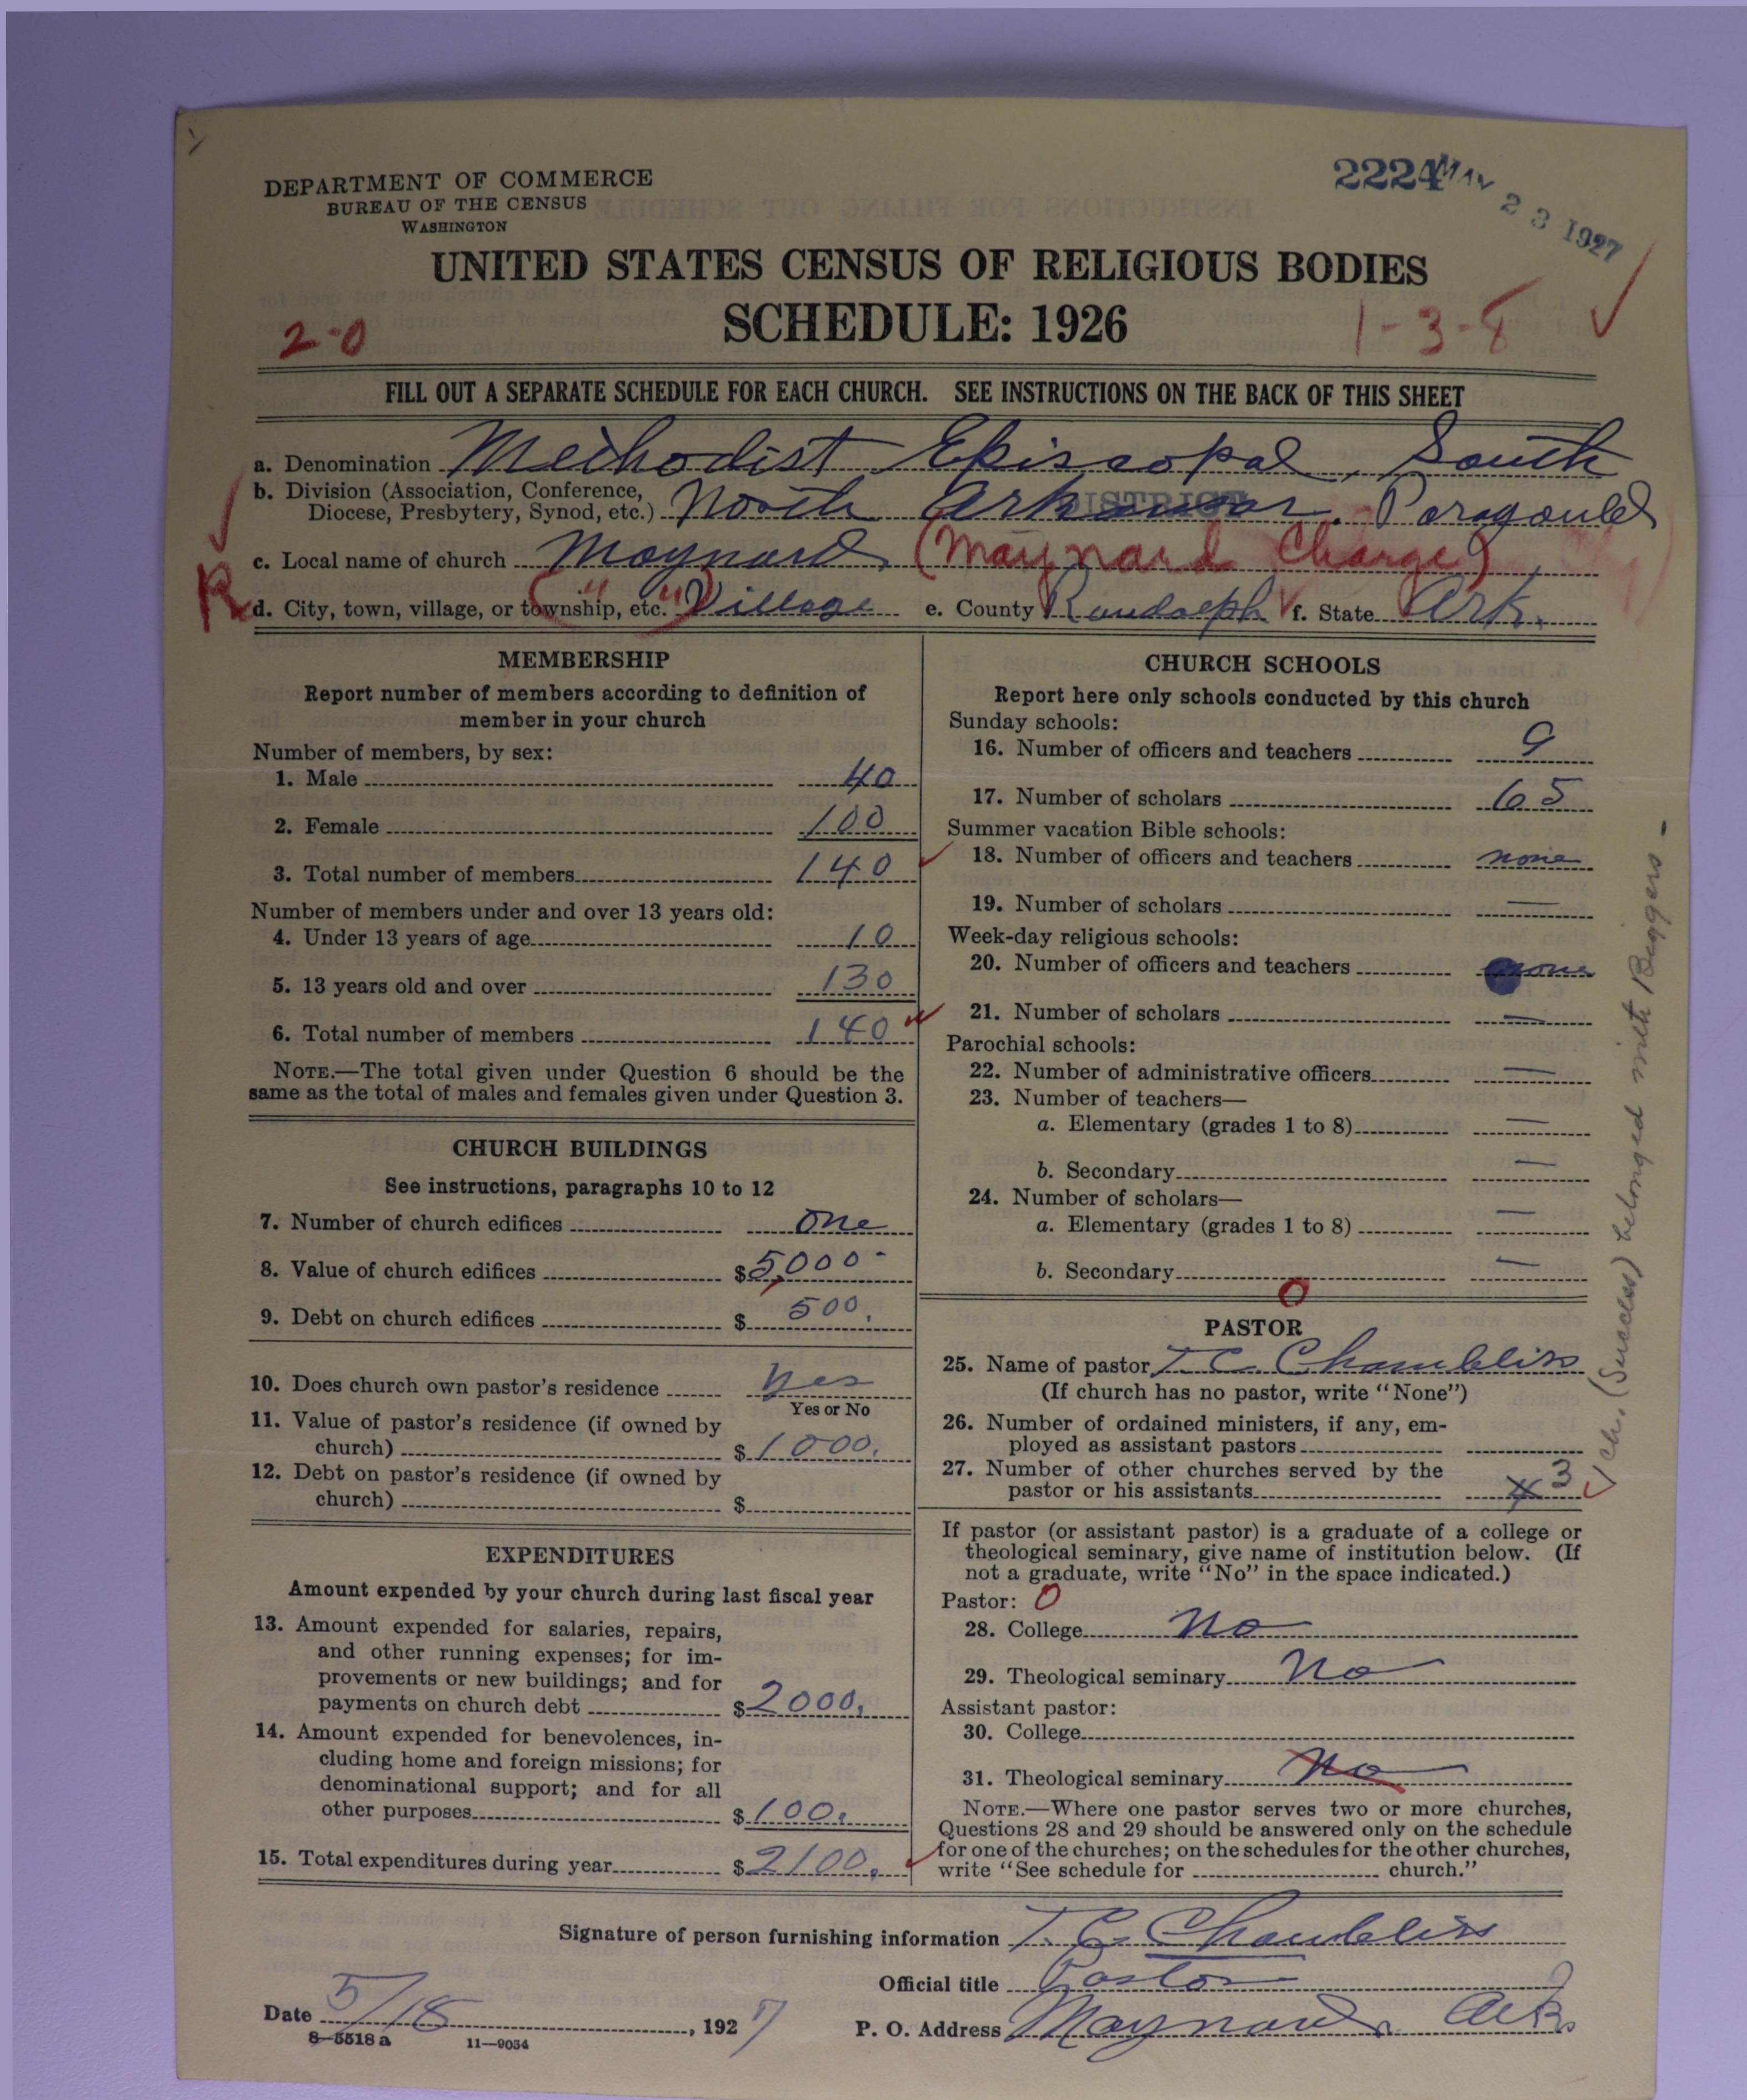 DEPARTMENT OF COMMERCE
BUREAU OF THE CENSUS
WASHINGTON
2224
MAY 23 1927
UNITED STATES CENSUS OF RELIGIOUS BODIES
SCHEDULE: 1926
2-0
1-3-8
FILL OUT A SEPARATE SCHEDULE FOR EACH CHURCH. SEE INSTRUCTIONS ON THE BACK OF THIS SHEET
a. Denomination Methodist Episcopal, South
b. Division (Association, Conference,
Diocese, Presbytery, Synod, etc.) North Arkansas. Paragould
DISTRICT
c. Local name of church Maynard (Maynard Charge)
R
d. City, town, village, or township, etc. (" ") Village e. County Randolph f. State Ark.
MEMBERSHIP
Report number of members according to definition of
member in your church
Number of members, by sex:
1. Male 40
2. Female 100
3. Total number of members 140
Number of members under and over 13 years old:
4. Under 13 years of age 10
5. 13 years old and over 130
6. Total number of members 140
NOTE.—The total given under Question 6 should be the
same as the total of males and females given under Question 3.
CHURCH BUILDINGS
See instructions, paragraphs 10 to 12
7. Number of church edifices one
8. Value of church edifices $5,000-
9. Debt on church edifices $ 500.
10. Does church own pastor's residence Yes
Yes or No
11. Value of pastor's residence (if owned by
church) $1000.
12. Debt on pastor's residence (if owned by
church) $
EXPENDITURES
Amount expended by your church during last fiscal year
13. Amount expended for salaries, repairs,
and other running expenses; for im-
provements or new buildings; and for
payments on church debt $2000.
14. Amount expended for benevolences, in-
cluding home and foreign missions; for
denominational support; and for all
other purposes $100.
15. Total expenditures during year $2100.
CHURCH SCHOOLS
Report here only schools conducted by this church
Sunday schools:
16. Number of officers and teachers 9
17. Number of scholars 65
Summer vacation Bible schools:
18. Number of officers and teachers none
19. Number of scholars —
Week-day religious schools:
20. Number of officers and teachers none
21. Number of scholars —
Parochial schools:
22. Number of administrative officers —
23. Number of teachers—
a. Elementary (grades 1 to 8) —
b. Secondary —
24. Number of scholars—
a. Elementary (grades 1 to 8) —
b. Secondary —
0
PASTOR
25. Name of pastor T. C. Chambliss
(If church has no pastor, write "None")
26. Number of ordained ministers, if any, em-
ployed as assistant pastors
27. Number of other churches served by the
pastor or his assistants 4 3
Ch. (Success) belonged with Biggers -
If pastor (or assistant pastor) is a graduate of a college or
theological seminary, give name of institution below. (If
not a graduate, write "No" in the space indicated.)
Pastor: 0
28. College No
29. Theological seminary No
Assistant pastor:
30. College
31. Theological seminary No
NOTE.—Where one pastor serves two or more churches,
Questions 28 and 29 should be answered only on the schedule
for one of the churches; on the schedules for the other churches,
write "See schedule for church."
Signature of person furnishing information T. C. Chambliss
Official title Pastor
Date 5/18, 1927
P. O. Address Maynard, Ark
8-5518 a 11-9034